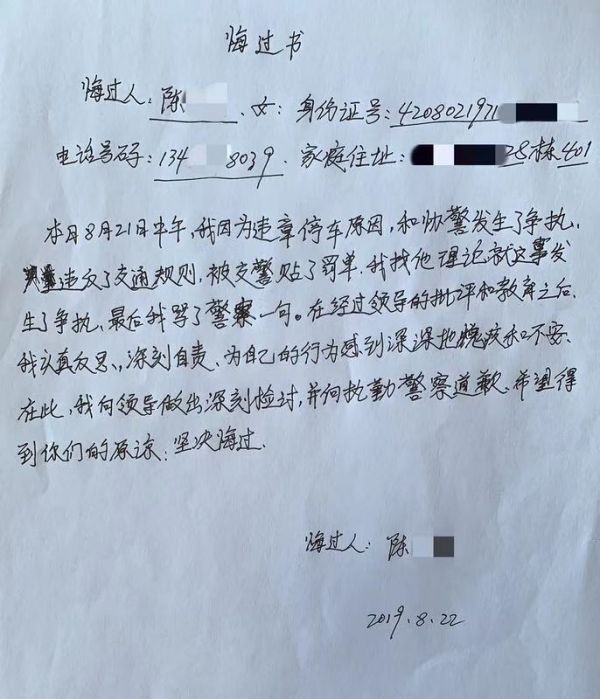 悔过书
悔过人:陈 .女:身份证号:4208021971
电话号码:134 8039.家庭住址: 28栋401
本月8月21日中午,我因为违章停车原因,和协警发生了争执,
违反了交通规则,被交警贴了罚单.我找他理论就这事发
生了争执,最后我骂了警察一句。在经过领导的批评和教育之后,
我认真反思、深刻自责、为自己的行为感到深深地愧疚和不安、
在此,我向领导做出深刻检讨,并向执勤警察道歉.希望得
到你们的原谅:坚决悔过.
悔过人:陈
2019.8.22